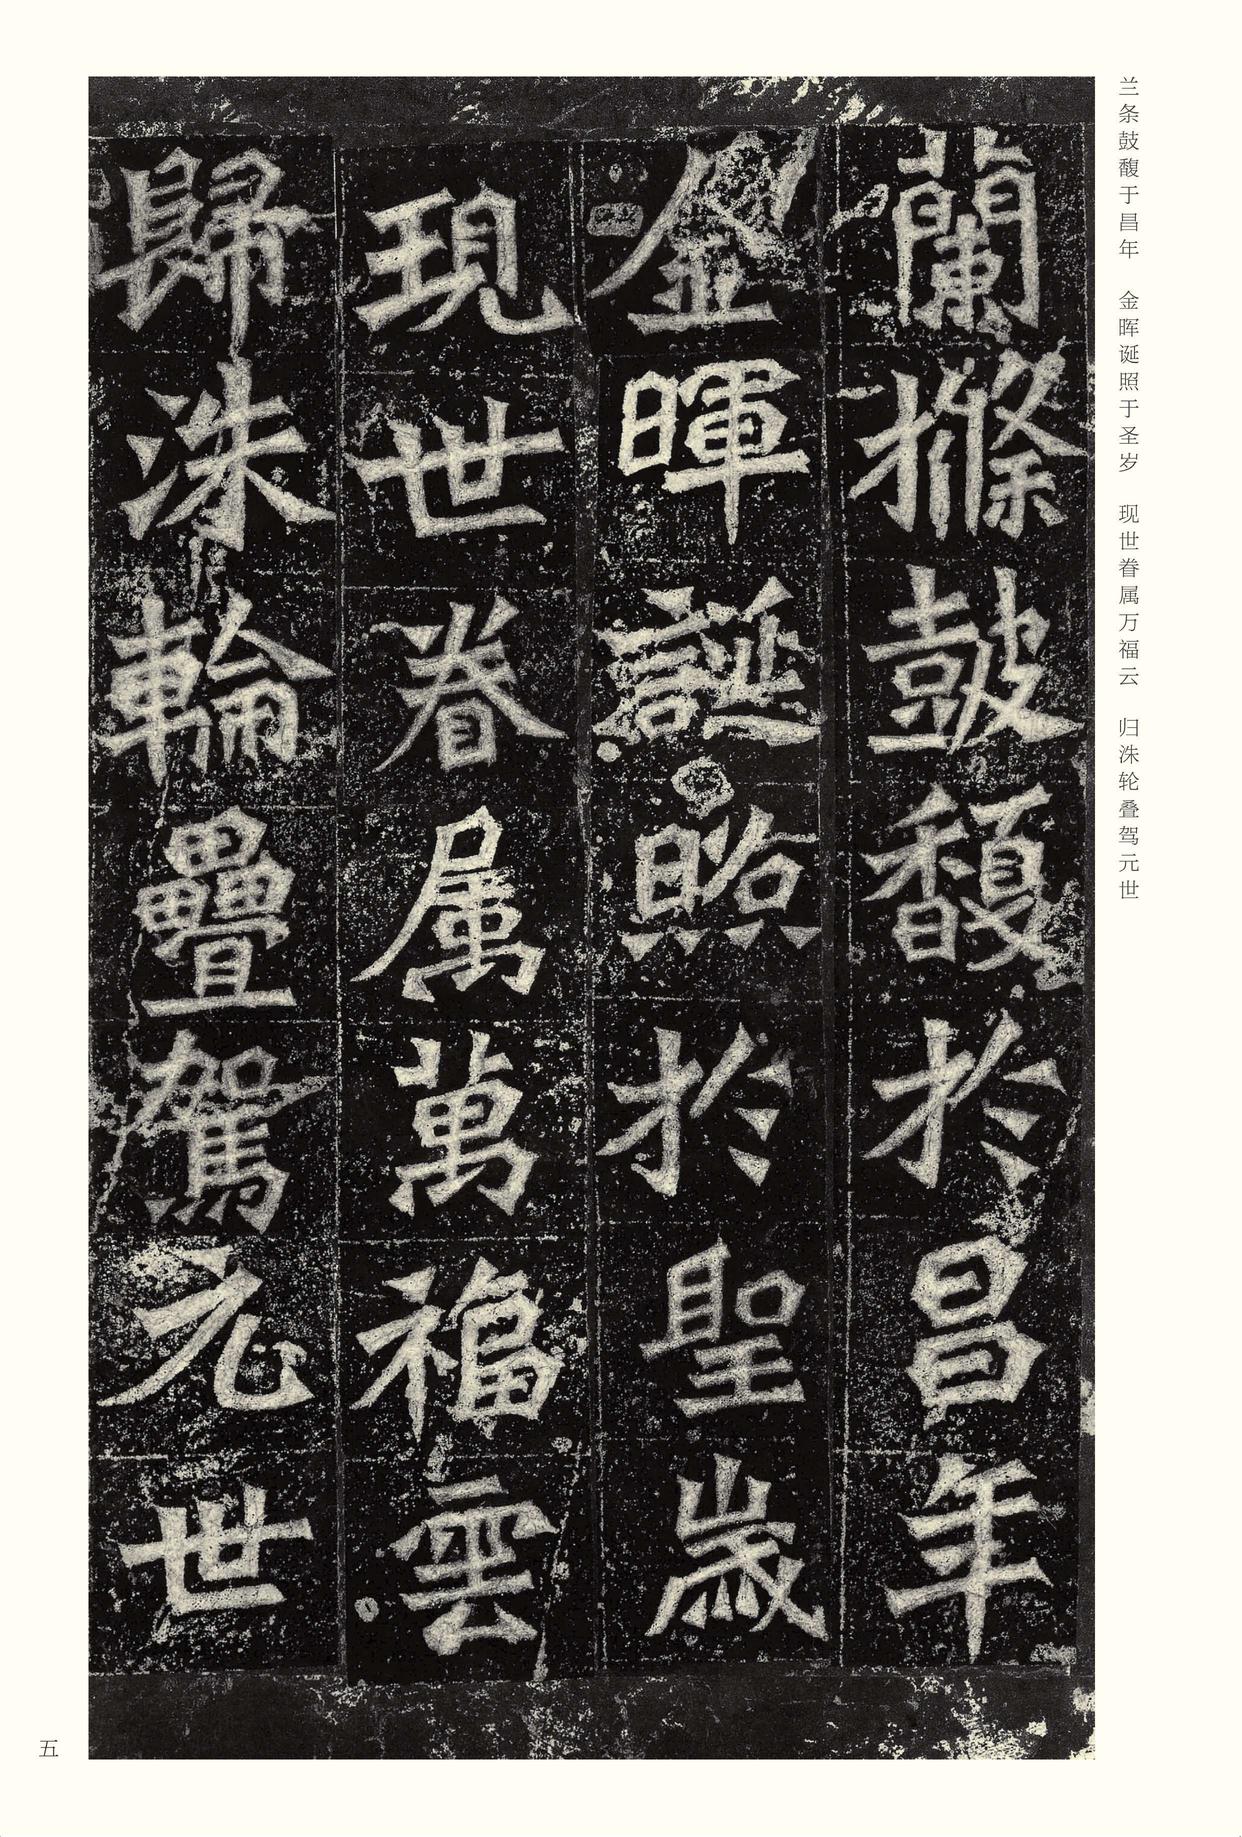 兰条鼓馥于昌年　金晖诞照于圣岁　现世眷属万福云　归洙轮叠驾元世
蘭㨤鼓馥於昌年
金暉誕照於聖歲
現世眷属萬福雲
歸洙輪疊駕元世
五